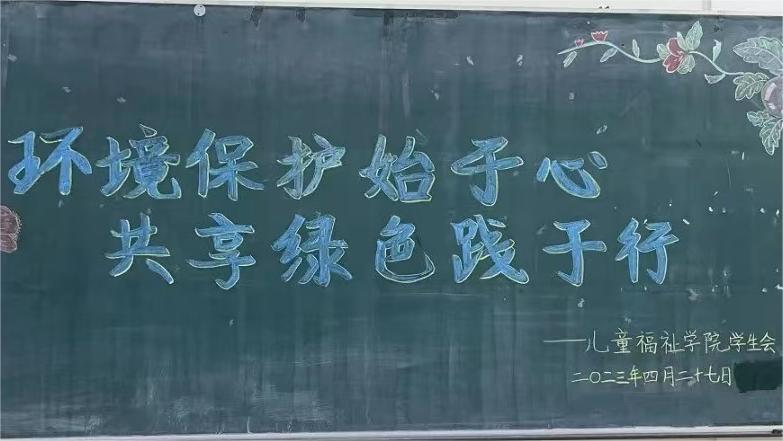 环境保护始于心
共享绿色践于行
——儿童福祉学院学生会
二〇二三年四月二十七日